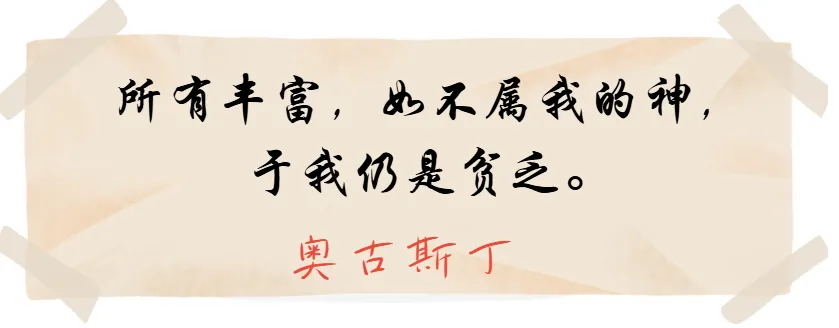 所有丰富，如不属我的神，
于我仍是贫乏。
奥古斯丁